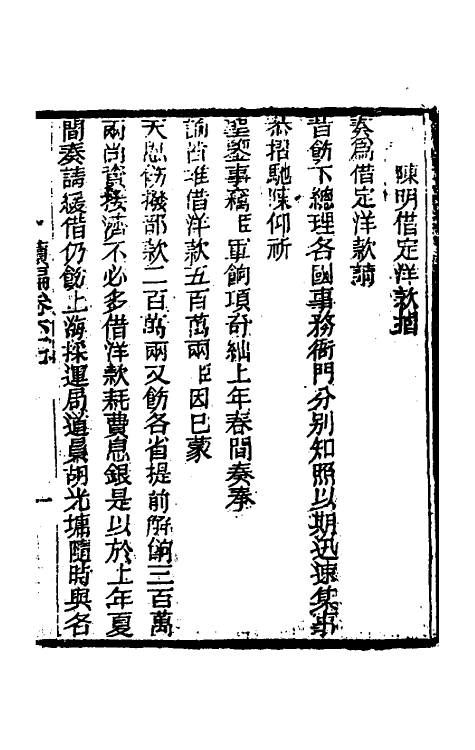 陳明借定洋款摺
奏為借定洋款請
旨飭下總理各國事務衙門分別知照以期迅速集事
恭摺馳陳仰祈
聖鑒事竊臣軍餉項奇絀上年春間奏奉
諭旨准借洋款五百萬兩臣因已蒙
天恩飭撥部款二百萬兩又飭各省提前解餉三百萬
兩尚資接濟不必多借洋款耗費息銀是以於上年夏
間奏請緩借仍飭上海採運局道員胡光墉隨時與各
奏稿續編卷
一